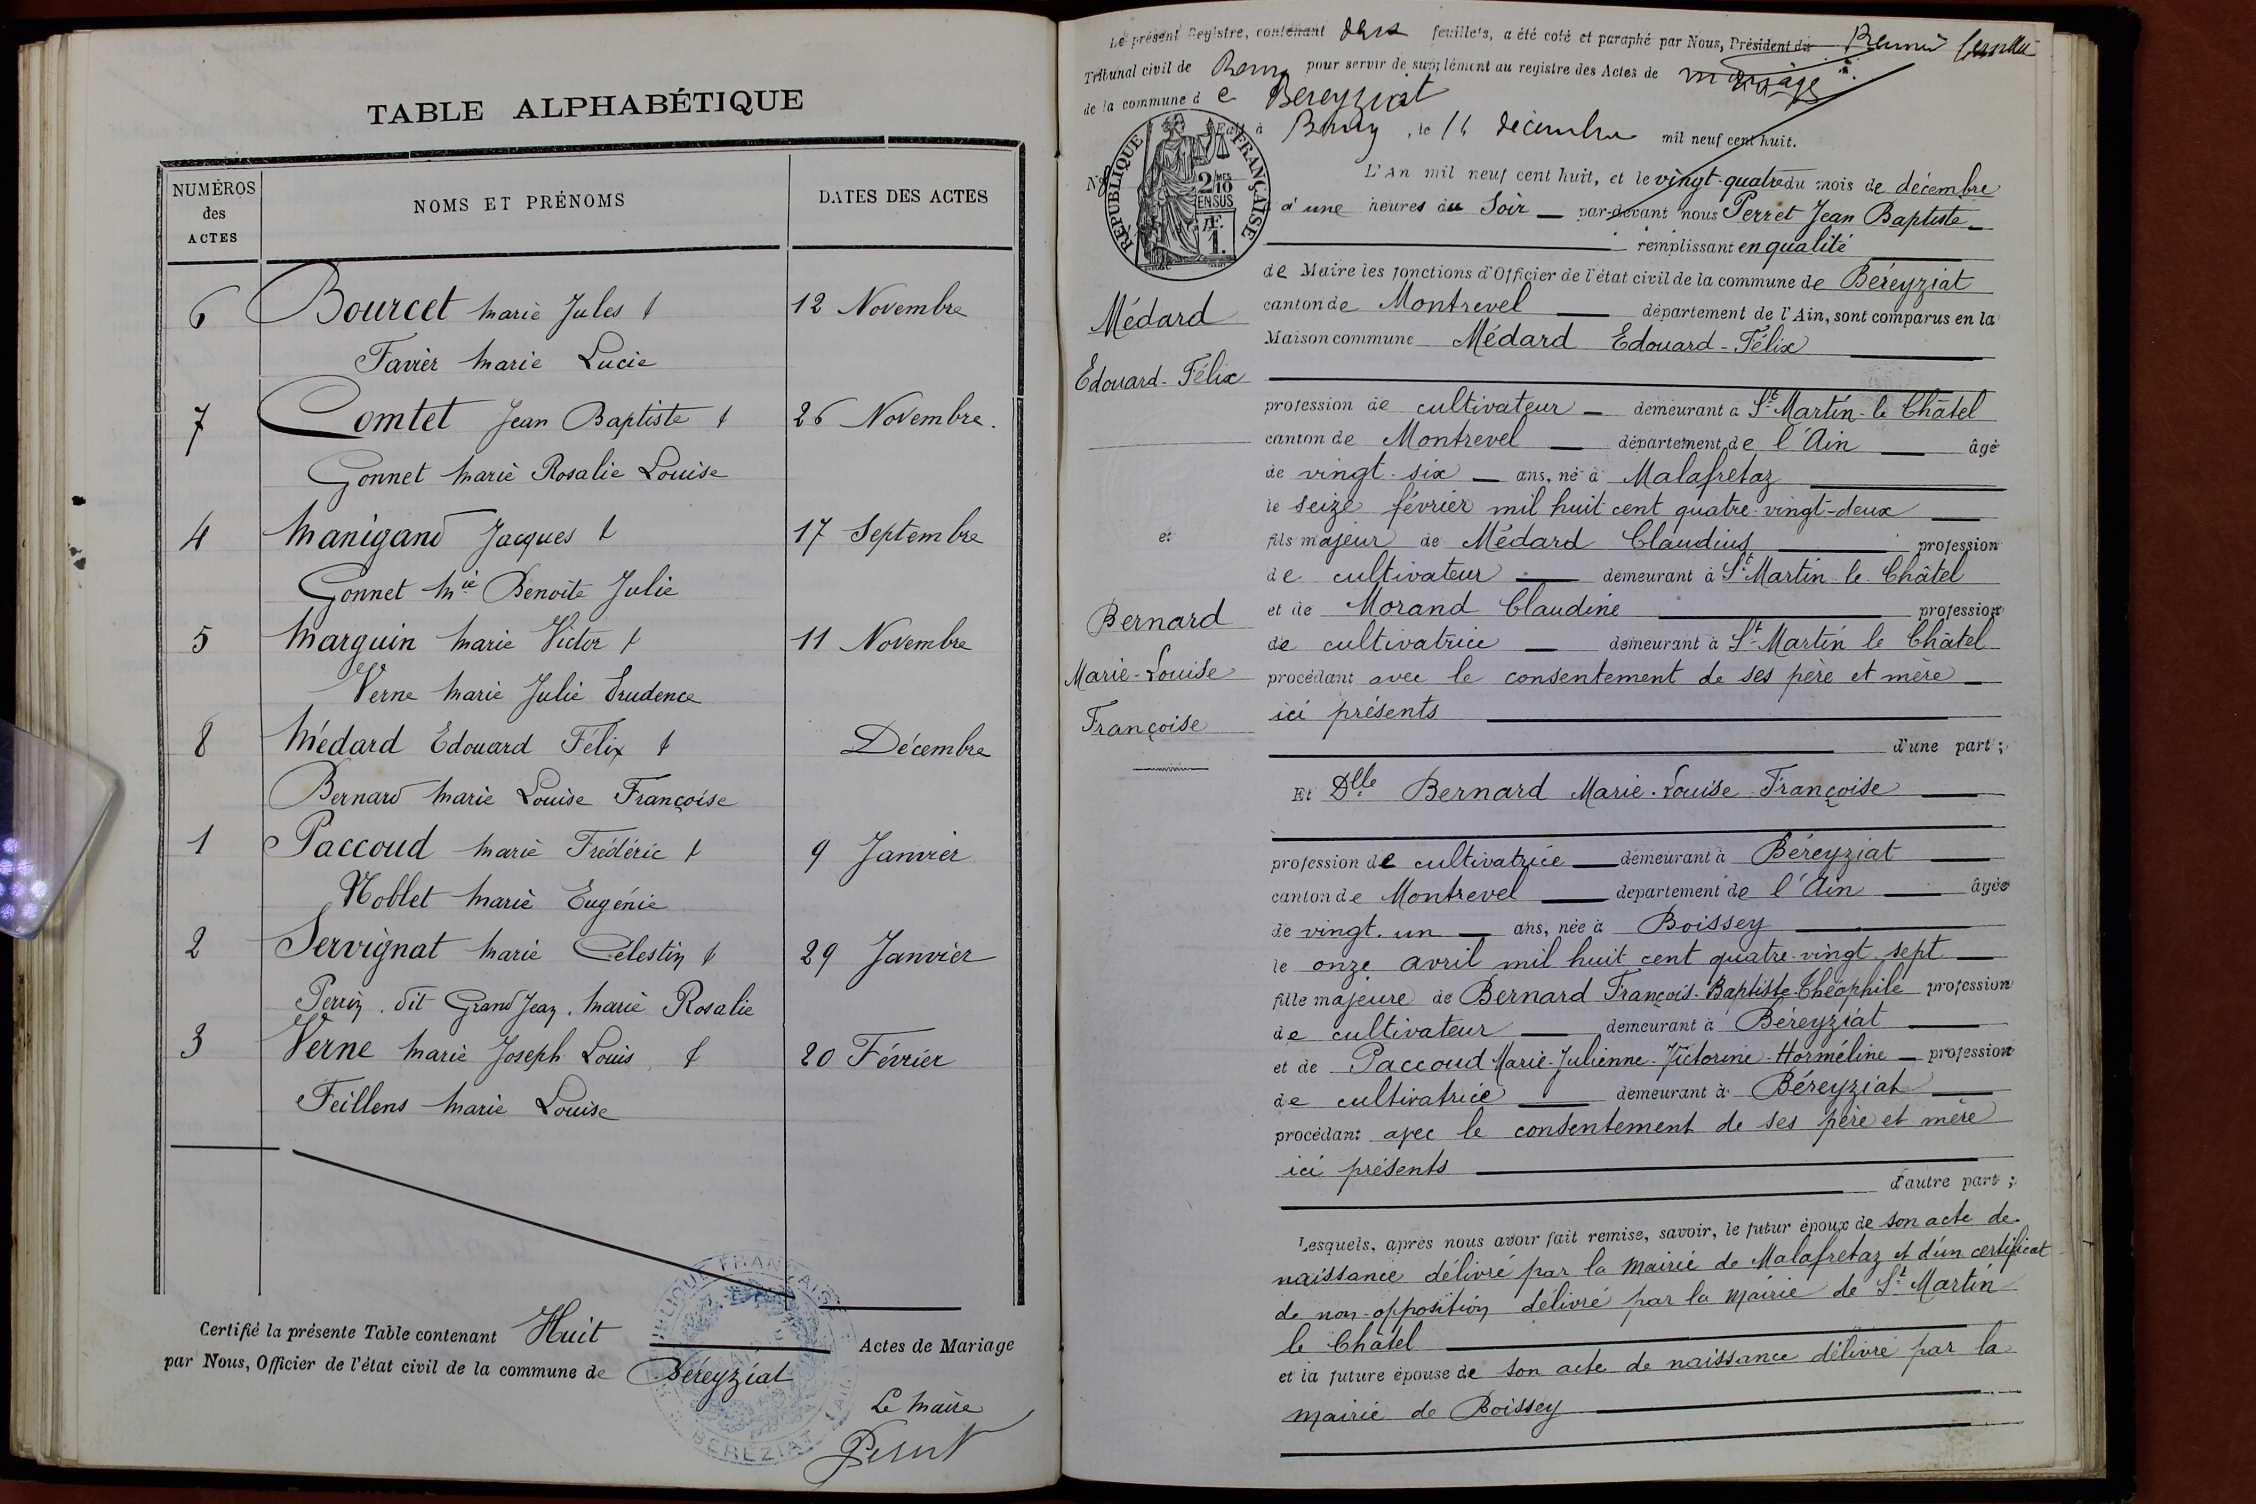 TABLE ALPHABÉTIQUE
NUMÉROS des ACTES
NOMS ET PRÉNOMS
DATES DES ACTES
6 Bourcet Marie Jules 12 Novembre
Favier Marie Lucie
7 Comtet Jean Baptiste 26 Novembre.
Gonnet Marie Rosalie Louise
4 Manigand Jacques 17 Septembre
Gonnet Mie Benoite Julie
5 Marguin Marie Victor 11 Novembre
Verne Marie Julie Prudence
8 Médard Edouard Félix Décembre
Bernard Marie Louise Françoise
1 Paccoud Marie Frédéric 9 Janvier
Noblet Marie Eugénie
2 Servignat Marie Célestin 29 Janvier
Perrin dit Grand Jean Marie Rosalie
3 Verne Marie Joseph Louis 20 Février
Feillens Marie Louise
Certifié la présente Table contenant Huit Actes de Mariage
par Nous, Officier de l'état civil de la commune de Béreyziat
Le Maire
Perret
RÉPUBLIQUE FRANÇAISE
BÉRÉZIAT
Le présent Registre, contenant deux feuillets, a été coté et paraphé par Nous, Président du
Tribunal civil de Bourg pour servir de supplément au registre des Actes de mariage
de la commune de Bereyziat
Fait à Bourg, le 16 décembre mil neuf cent huit.
RÉPUBLIQUE FRANÇAISE
2/10 EN SUS
1 F.
No 8
L'An mil neuf cent huit, et le vingt-quatre du mois de décembre
à une heures du Soir par-devant nous Perret Jean Baptiste
remplissant en qualité
de Maire les fonctions d'Officier de l'état civil de la commune de Béreyziat
canton de Montrevel département de l'Ain, sont comparus en la
Maison commune Médard Edouard-Félix
Médard
Edouard-Félix
et
Bernard
Marie-Louise
Françoise
profession de cultivateur demeurant à St Martin-le Châtel
canton de Montrevel département de l'Ain âgé
de vingt-six ans, né à Malafretaz
le seize février mil huit cent quatre-vingt-deux
fils majeur de Médard Claudius profession
de cultivateur demeurant à St Martin-le-Châtel
et de Morand Claudine profession
de cultivatrice demeurant à St Martin le Châtel
procédant avec le consentement de ses père et mère
ici présents
d'une part;
Et Dlle Bernard Marie-Louise Françoise
profession de cultivatrice demeurant à Béreyziat
canton de Montrevel département de l'Ain âgée
de vingt-un ans, née à Boissey
le onze avril mil huit cent quatre-vingt sept
fille majeure de Bernard François-Baptiste-Théophile profession
de cultivateur demeurant à Béreyziat
et de Paccoud Marie-Julienne-Victorine-Horméline profession
de cultivatrice demeurant à Béreyziat
procédant avec le consentement de ses père et mère
ici présents
d'autre part;
Lesquels, après nous avoir fait remise, savoir, le futur époux de son acte de
naissance délivré par la Mairie de Malafretaz et d'un certificat
de non-opposition délivré par la Mairie de St Martin
le Châtel
et la future épouse de son acte de naissance délivré par la
Mairie de Boissey